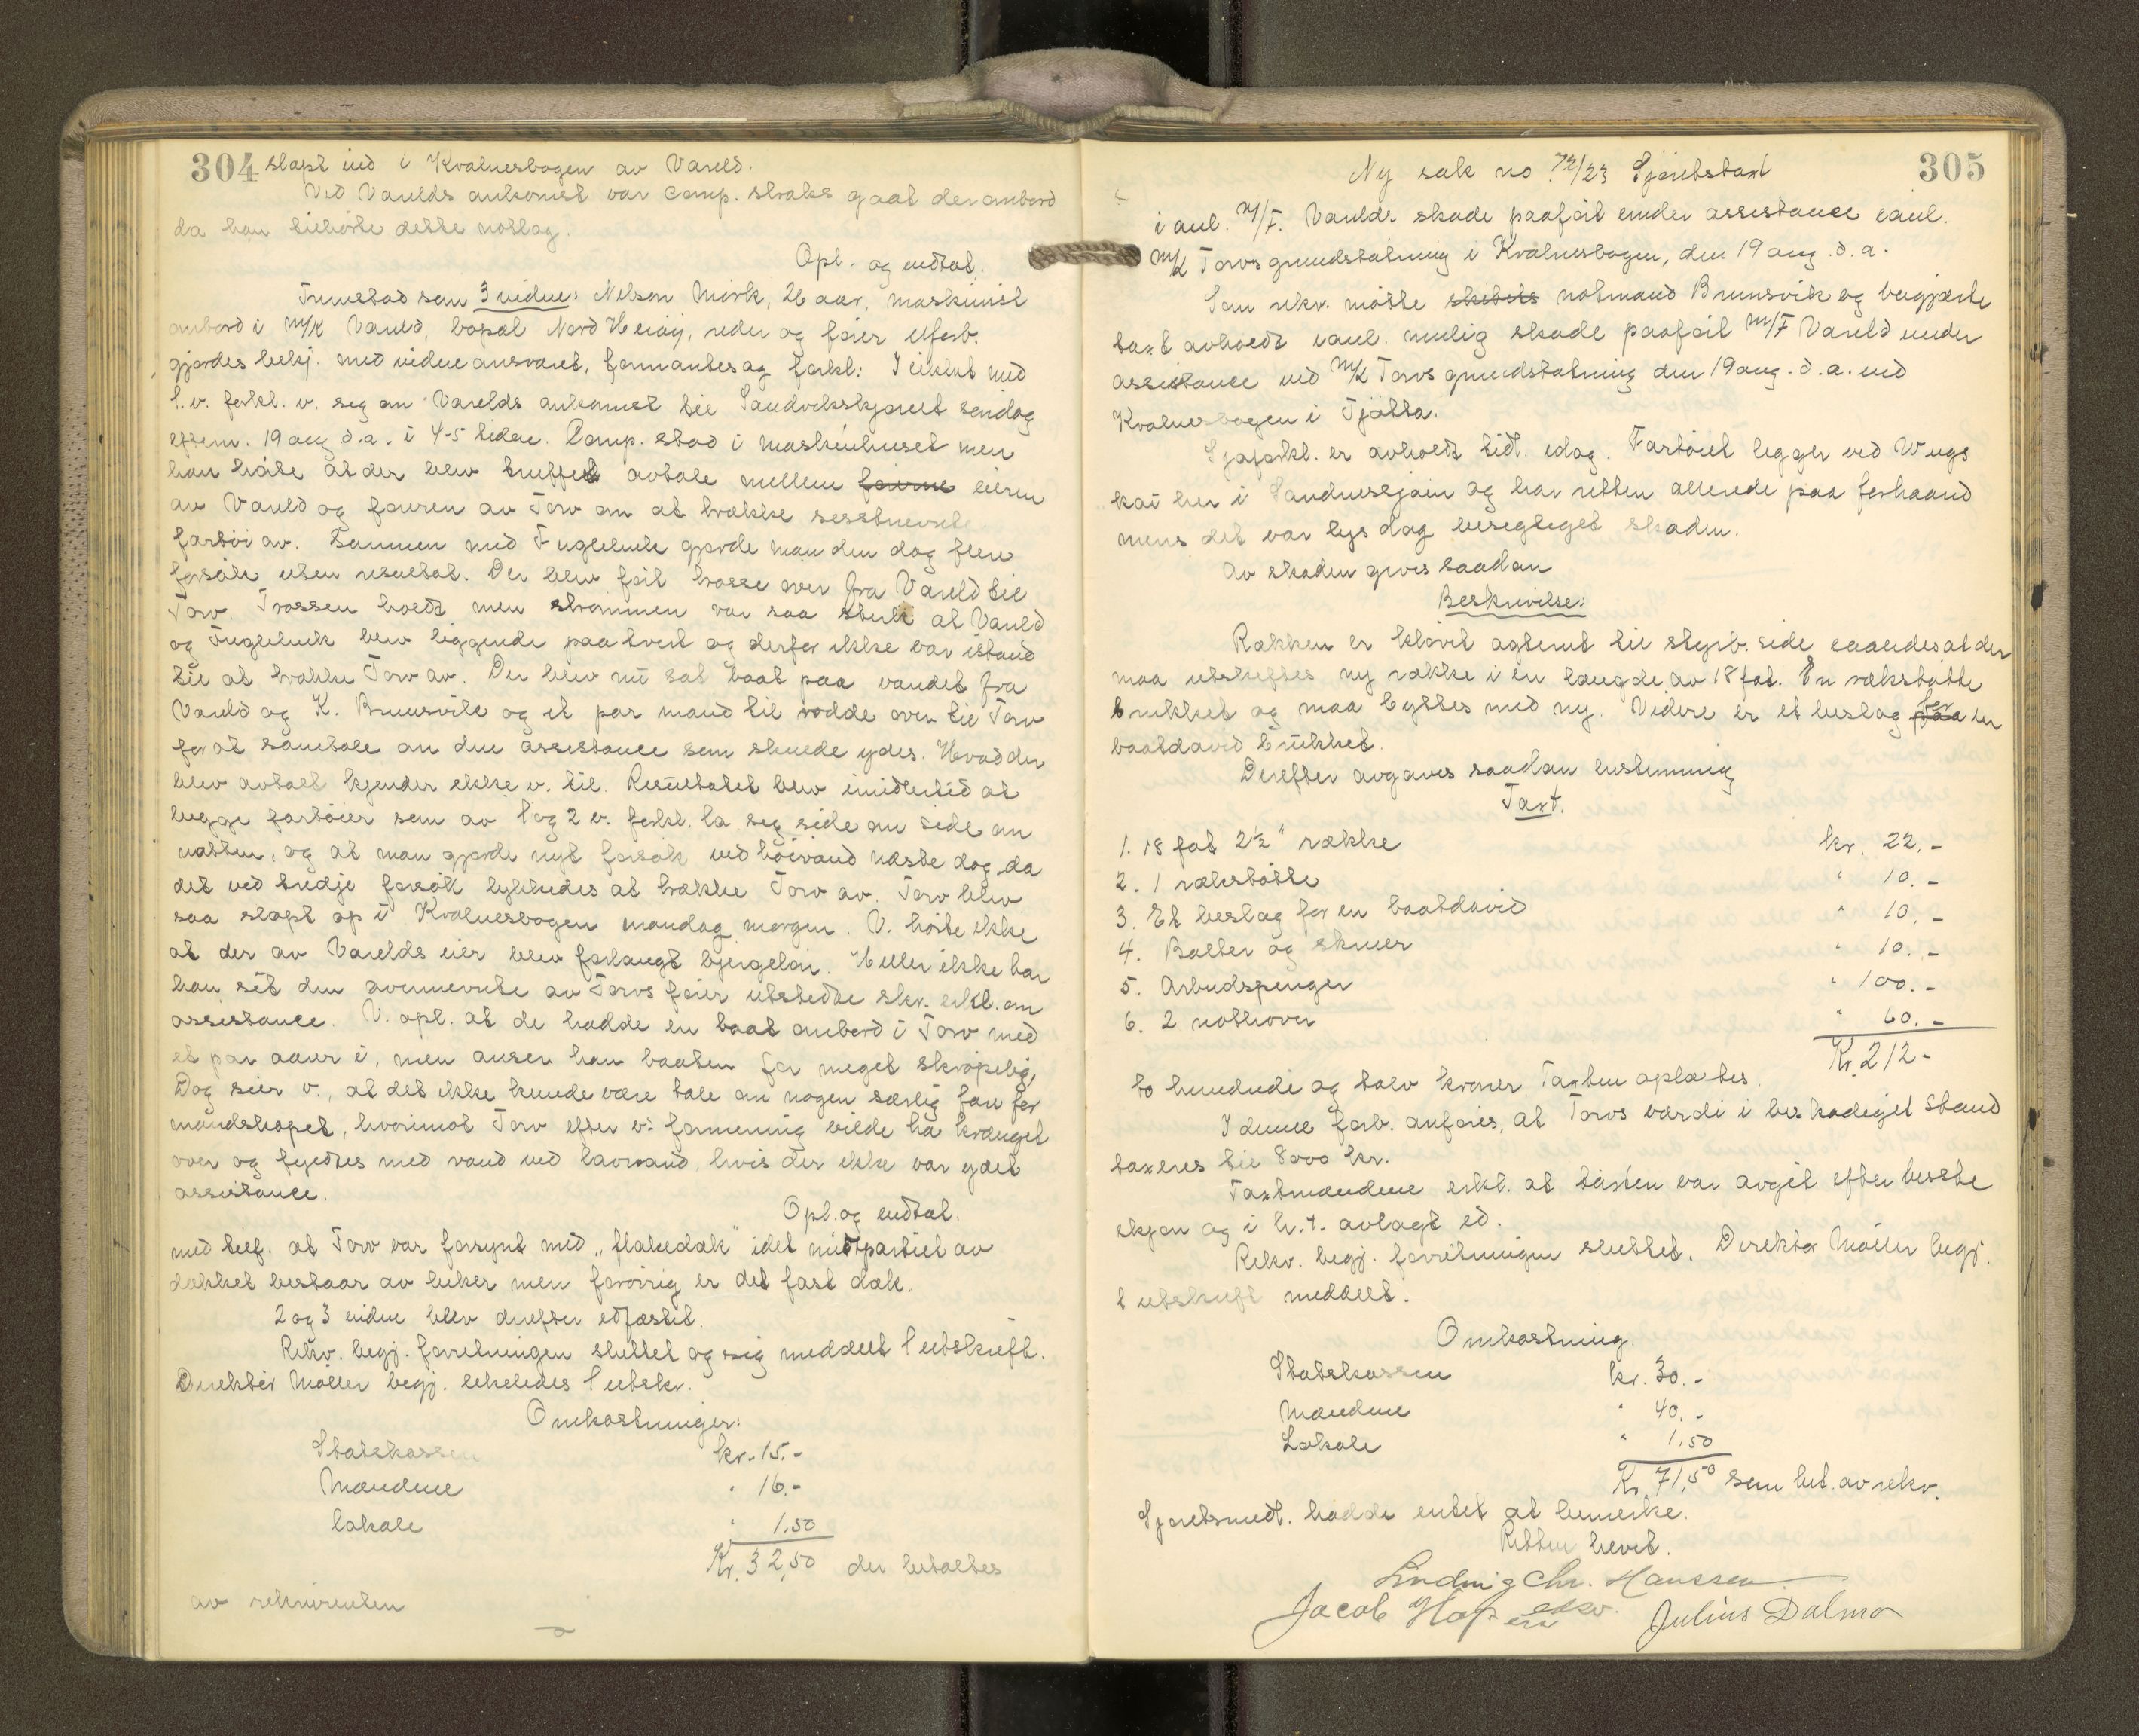 304 slæpt ind i Kvalnesbogen av Vareld.
Ved Varelds ankomst var comp. straks gaat der ombord
da han tilhørte dette notlag.
Opl. og vedtat.
Fremstod som 3 vidne: Nelson Mörk, 26 aar, maskinist
ombord i M/K Vareld, bopæl Nord Herøy, reder og fører efterb.
gjordes bekj. med vidneansvaret, formantes og forkl: I likhet med
1. v. forkl. v. seg om Varelds ankomst til Sandviksskjæret søndag
efterm. 19 aug d.a. i 4-5 tiden. Comp. stod i maskinhuset men
han hörte at der blev truffet avtale mellem förerne eieren
av Vareld og føreren av Torv om at trække sesstnevnte
fartöi av. Sammen med Fugleneuk gjorde man den dag flere
forsök uten resultat. Der blev fört trosse over fra Vareld til
Torv. Trossen holdt men strömmen var saa sterk at Vareld
og Fugleneuk blev liggende paa tvert og derfor ikke var istand
til at trække Torv av. Der blev nu sat baat paa vandet fra
Vareld og K. Brunsvik og et par mand til rodde over til Torv
for at samtale om den assistance som skulde ydes. Hvad der
blev avtalt kjender ikke v. til. Resultatet blev imidlertid at
begge fartöier som av 1 og 2 v. forkl. la seg side om side om
natten, og at man gjorde nyt forsök ved höivand næste dag, da
det ved tredje forsök lykkedes at trække Torv av. Torv blev
saa slæpt op i Kvalnesbogen mandag morgen. V. hörte ikke
at der av Varelds eier blev forlangt bjergelön. Heller ikke har
han sét den ovennevnte av Torvs förer utstedte skr. erkl. om
assistance. V. opl. at de hadde en baat ombord i Torv med
et par aarer i, men anser han baaten for meget skröpelig,
Dog sier v., at det ikke kunde være tale om nogen særlig fare for
mandskapet, hvorimot Torv efter v's formening vilde ha krænget
over og fyldtes med vand ved lavvand, hvis der ikke var ydet
assistance.
Opl. og vedtat.
med tilf. at Torv var forsynt med „flakedæk" idet midtpartiet av
dækket bestaar av luker men forövrig er det fast dæk.
2 og 3 vidne blev derefter edfæstet.
Rekv. begj. forretningen sluttet og sig meddelt 1 utskrift.
Direktör Möller begj. likeledes 1 utskr.
Omkostninger:
Statskassen kr. 15.-
Mændene " 16.-
lokale " 1,50
Kr. 32,50 der betaltes
av rekvirenten
305
Ny sak no 72/23 Sjöretstaxt
i anl. M/F. Varelds skade paaført under assistance ianl.
M/K Torvs grundstötning i Kvalnesbogen, den 19 aug. d.a.
Som rekv. mötte skibets notmand Brunsvik og begjærte
taxt avholdt ianl. mulig skade paaført M/F Vareld under
assistance ved M/K Torvs grundstötning den 19 aug. d.a. ved
Kvalnesbogen i Tjötta.
Sjöforkl. er avholdt tidl. idag. Fartöiet ligger ved Wugs
kai her i Sandnessjöen og har retten allerede paa forhaand
mens det var lys dag besigtiget skaden.
Av skaden gives saadan
Beskrivelse:
Rækken er klövet agterut til styrb. side saaledes at der
maa utskiftes ny række i en længde av 18 fot. En rækstötte
brækket og maa byttes med ny. Videre er et beslag paa for en
baatdavid brækket.
Derefter avgaves saadan bestemmig
Taxt.
1. 18 fot 2½" række kr. 22.-
2. 1 rækstötte " 10.-
3. Et beslag for en baatdavid " 10.-
4. Bolter og skruer " 10.-
5. Arbeidspenger " 100.-
6. 2 nothover " 60.-
Kr. 212-
to hundrede og tolv kroner. Taxten oplæstes.
I denne forb. anføres, at Torvs værdi i beskadiget stand
taxeres til 8000 kr.
Taxtmændene erkl. at taxten var avgit efter beste
skjön og i h.t. avlagt ed.
Rekv. begj. forretningen sluttet. Direktör Möller begj.
1 utskrift meddelt.
Omkostning.
Statskassen kr. 30.-
Mændene " 40.-
Lokale " 1,50
Kr. 71,50 som bet. av rekv.
Sjøretsmedl. hadde intet at bemerke.
Retten hevet.
Ludvig Chr. Hanssen
Jacob Hop edsv. Julius Dalmo